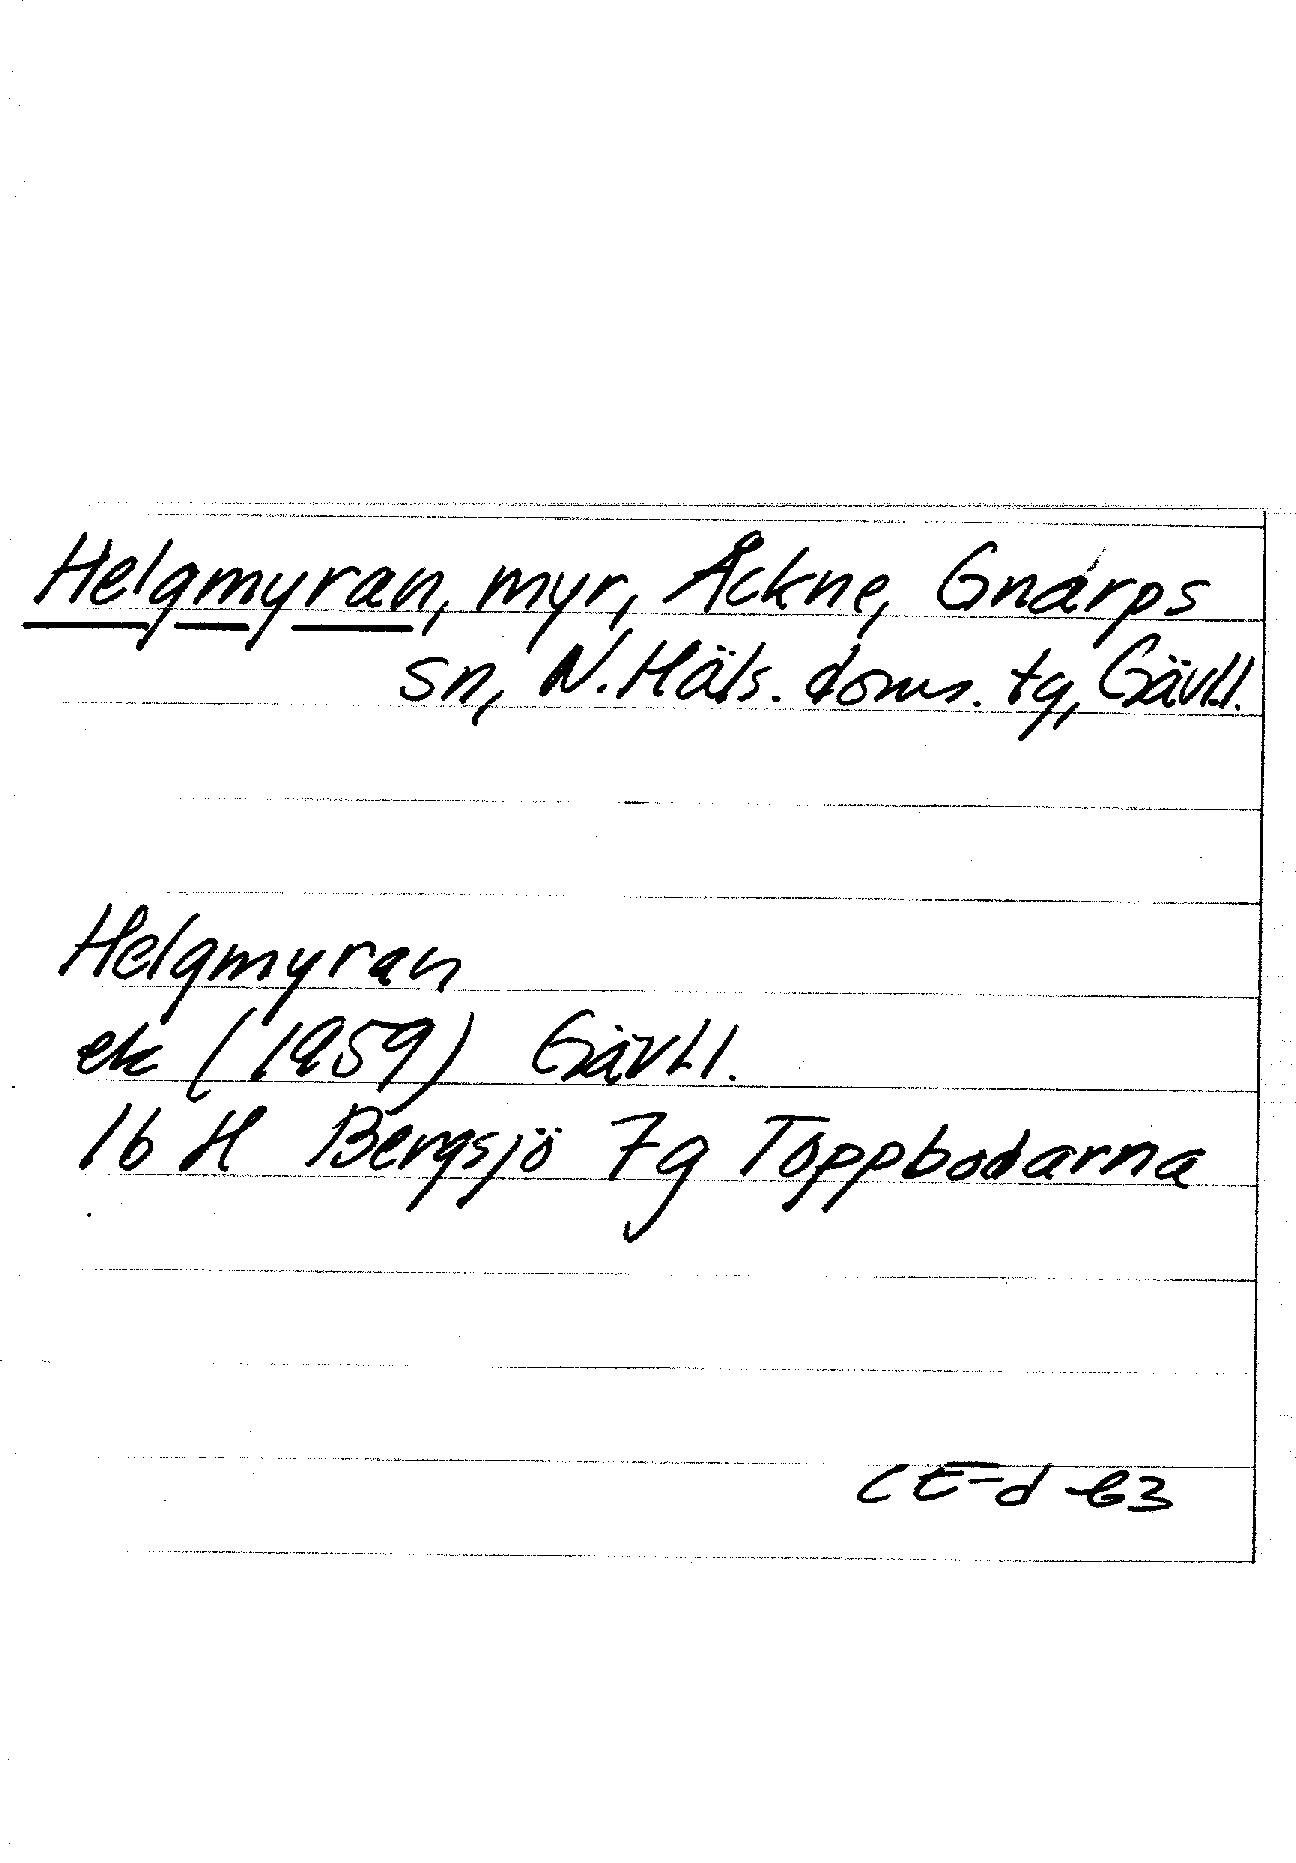 Helgmyran, myr, Åckne, Gnarps
sn, N. Häls. doms. tg, Gävl.l.
Helgmyran
ek (1959) Gävl.l.
16 H Bergsjö 7g Toppbodarna
CE-d -63